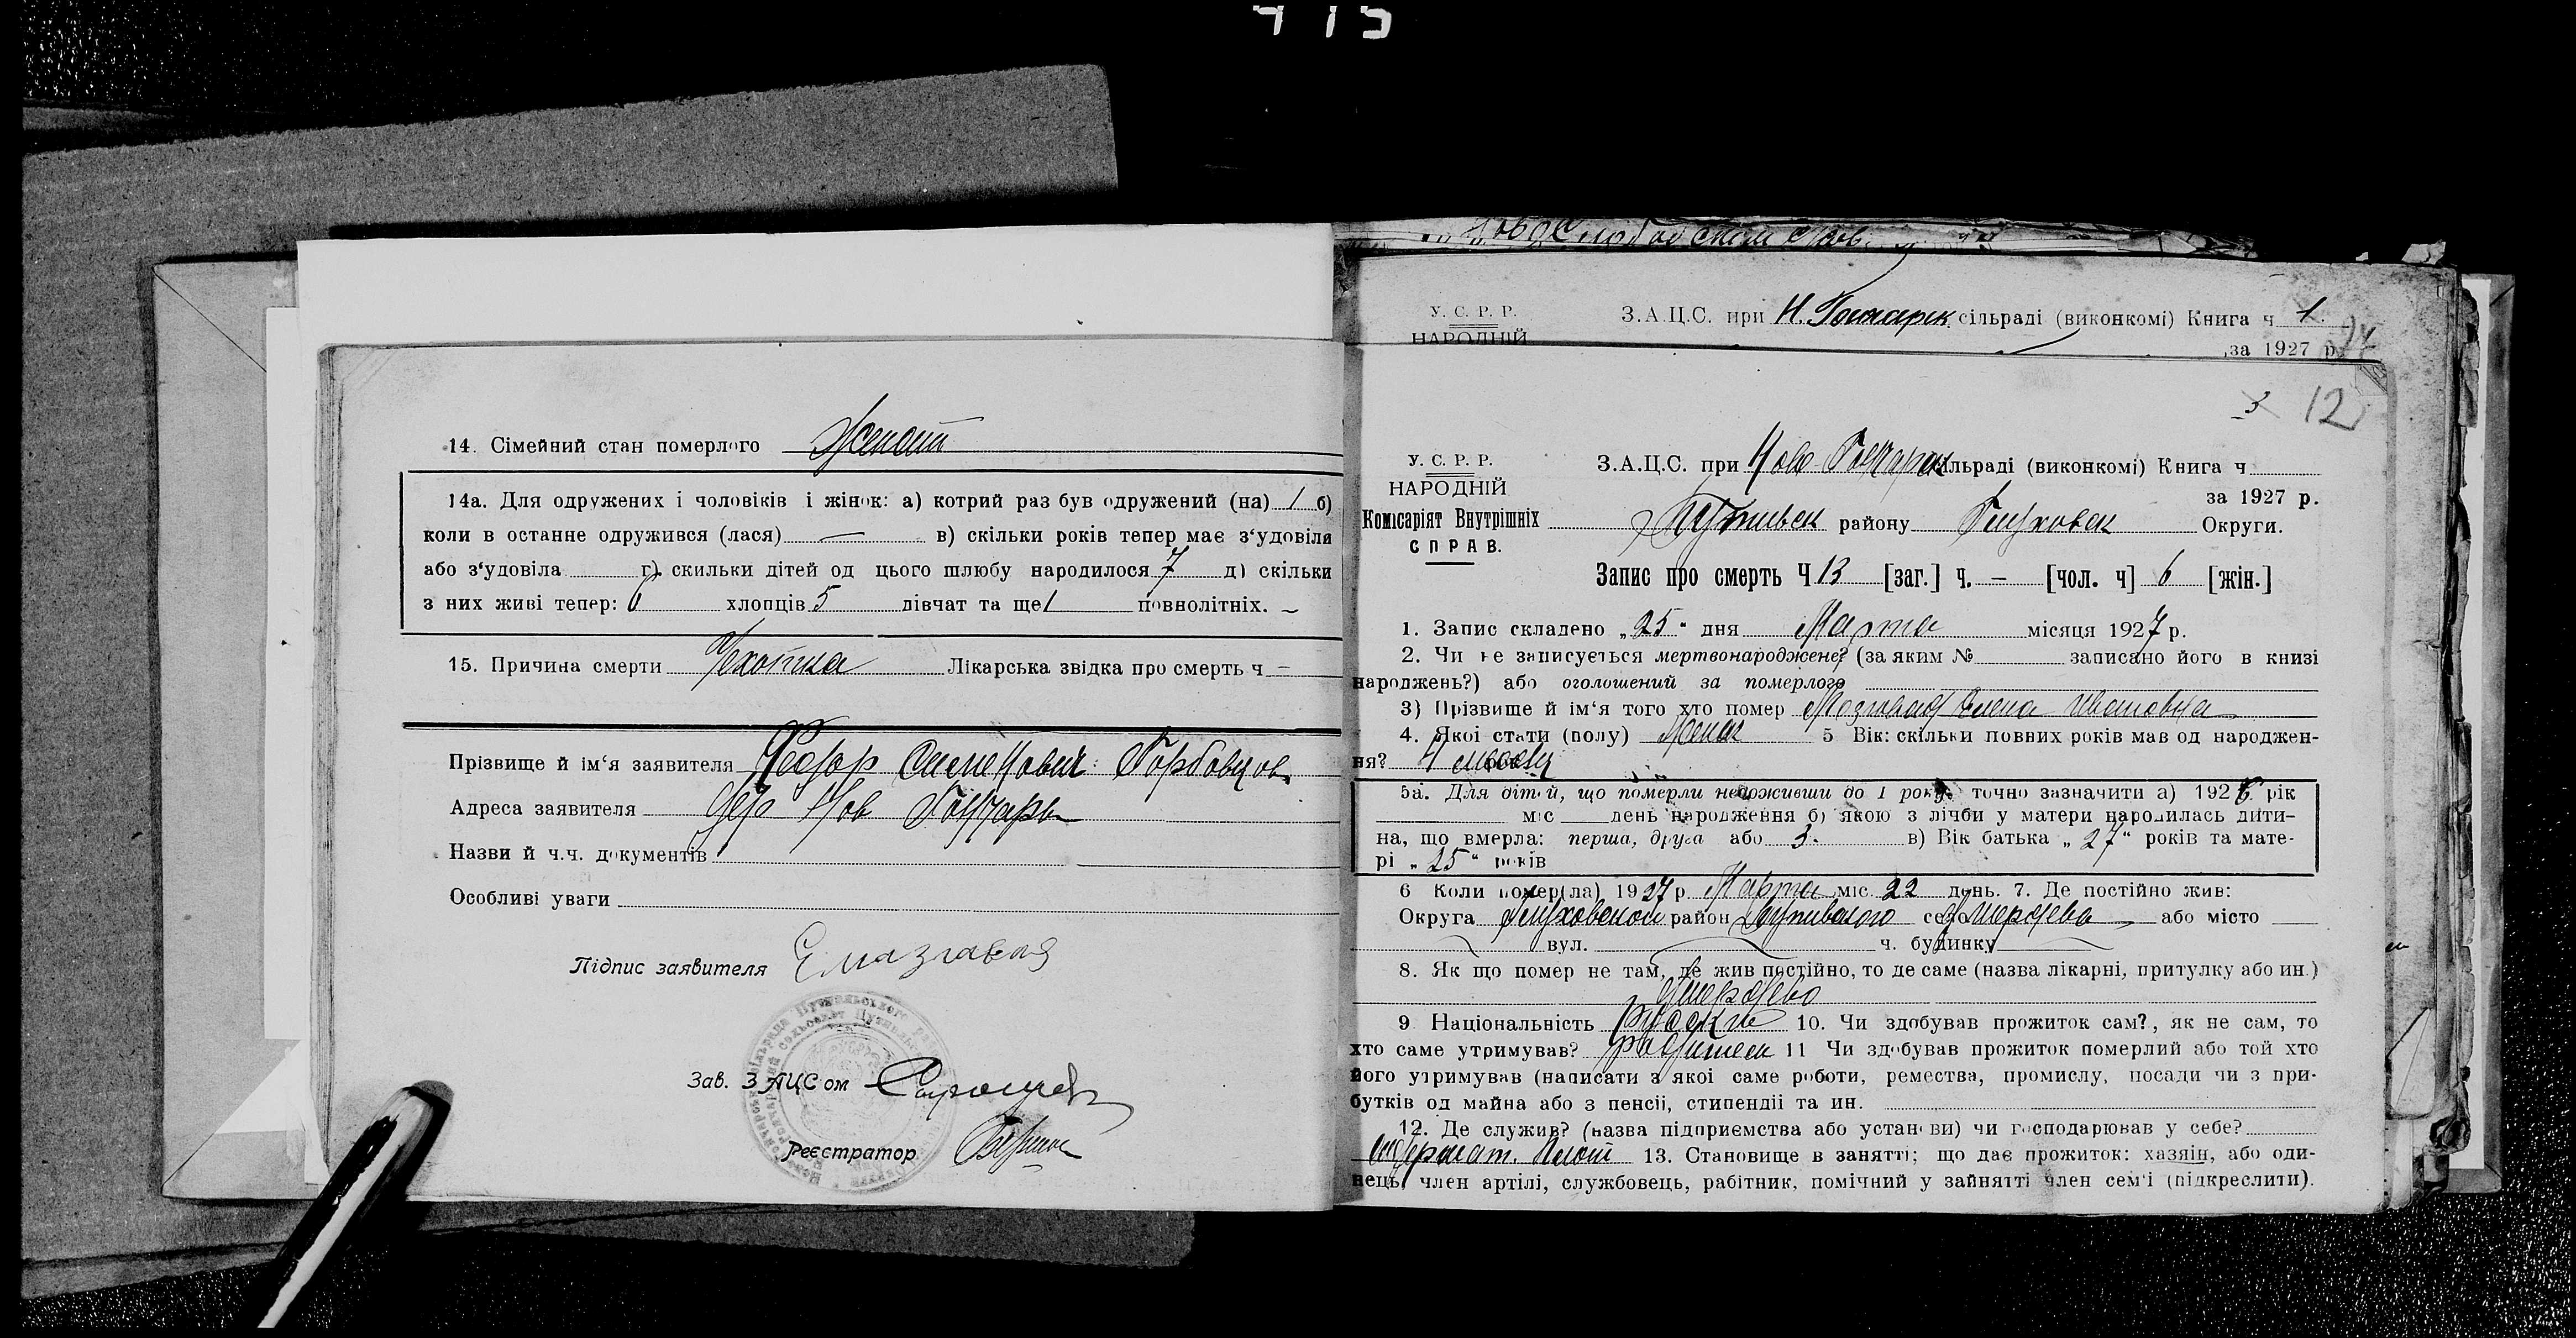 415
14. Сімейний стан померлого Женат
14а. Для одружених і чоловіків і жінок: а) котрий раз був одружений (на) 1 б)
коли в останне одружився (лася) — в) скільки років тепер має з‘удовіла
або з‘удовіла г) скильки дітей од цього шлюбу народилося 7 д) скільки
з них живі тепер: хлопців 5 дівчат та ще 1 повнолітніх. –
15. Причина смерти Чехотка Лікарська звідка про смерть ч –
Прізвище й ім‘я заявителя Федор Семенович Горбовцов
Адреса заявителя дер Нов Гончары
Назви й ч.ч. документів
Особливі уваги
Підпис заявителя
Зав. ЗАЦСом
Реєстратор
У. С. Р. Р.
НАРОДНІЙ
З.А.Ц.С. при Н. Гончарск сільраді (виконкомі) Книга ч 1
за 1927 р.
3 12
У. С. Р. Р.
НАРОДНІЙ
Комісаріят Внутрішніх
СПРАВ.
З.А.Ц.С. при Ново Гончарск сільраді (виконкомі) Книга ч
за 1927 р.
Путивльск району Глуховск Округи.
Запис про смерть Ч 13 [заг.] ч. – [чол. ч] 6 [жін.]
1. Запис складено „25“ дня Марта місяця 1927 р.
2. Чи не записується мертвонароджене? (за яким № записано його в книзі
народжень?) або оголошений за померлого
3) Прізвище й ім‘я того хто помер Мозговая Елена Ивановна
4. Якої стати (полу) Женск 5 Вік: скільки повних років мав од народжен-
ня? 4 месяц
5а. Для дітей, що померли недоживши до 1 року точно зазначити а) 1926 рік
міс день народження б) якою з лічби у матери народилась дити-
на, що вмерла: перша, друга або 3. в) Вік батька „27“ років та мате-
рі „25“ років
6 Коли помер(ла) 1927 р. Марта міс. 22 день. 7. Де постійно жив:
Округа Глуховской район Путивльского село або місто
вул. ч. будинку
8. Як що помер не там, де жив постійно, то де саме (назва лікарні, притулку або ин.)
9 Національність русская 10. Чи здобував прожиток сам?, як не сам, то
хто саме утримував? родители 11 Чи здобував прожиток померлий або той хто
його утримував (написати з якої саме роботи, ремества, промислу, посади чи з при-
бутків од майна або з пенсії, стипендії та ин.
12. Де служив? (назва підприємства або установи) чи господарював у себе?
13. Становище в занятті; що дає прожиток: хазяін, або оди-
нець, член артілі, службовець, рабітник, помічний у зайнятті член сем‘ї (підкреслити).